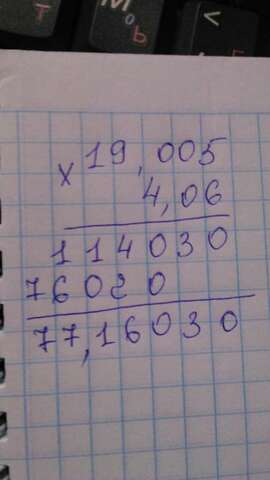 т М О Ь < Б
× 19,005
4,06
114030
76020
77,16030